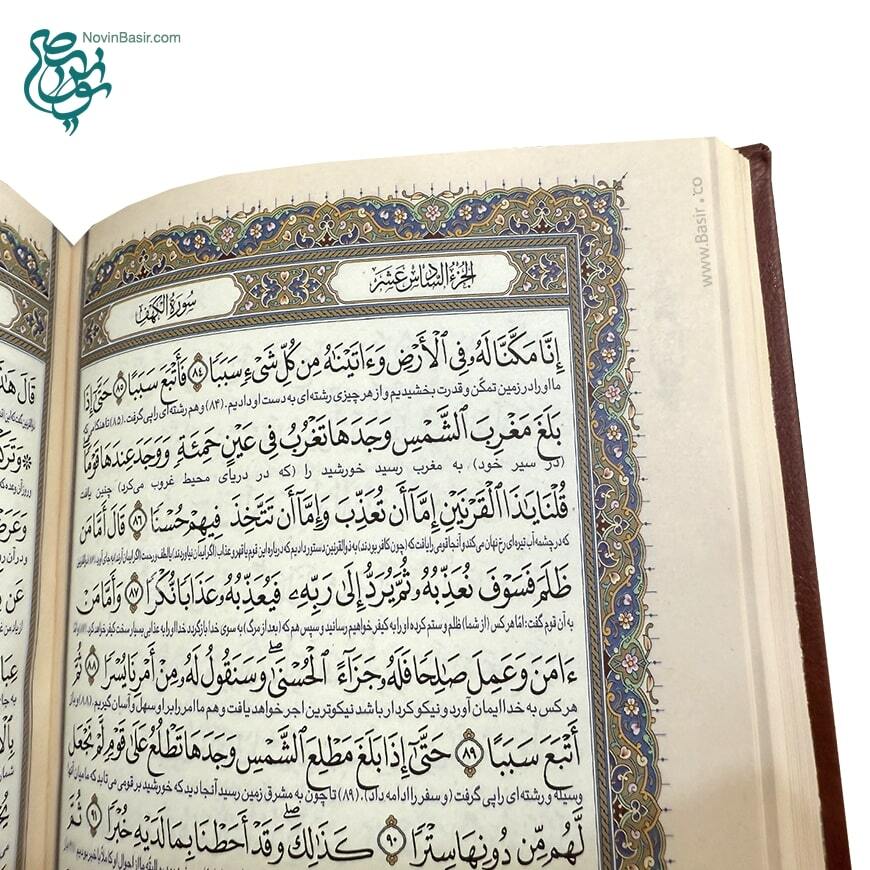 NovinBasir.com
www.Basir.co
الجزء السادس عشر
سورة الكهف
إِنَّا مَكَّنَّا لَهُۥ فِى ٱلْأَرْضِ وَءَاتَيْنَٰهُ مِن كُلِّ شَىْءٍ سَبَبًا ﴿٨٤﴾ فَأَتْبَعَ سَبَبًا ﴿٨٥﴾ حَتَّىٰٓ إِذَا
ما او را در زمین تمکّن و قدرت بخشیدیم و از هر چیزی رشته ای به دست او دادیم. (۸۴) و هم رشته ای را پی گرفت. (۸۵) تا هنگامی که
بَلَغَ مَغْرِبَ ٱلشَّمْسِ وَجَدَهَا تَغْرُبُ فِى عَيْنٍ حَمِئَةٍ وَوَجَدَ عِندَهَا قَوْمًا
(در سیر خود) به مغرب رسید خورشید را (که در دریای محیط غروب می‌کرد) چنین یافت
قُلْنَا يَٰذَا ٱلْقَرْنَيْنِ إِمَّآ أَن تُعَذِّبَ وَإِمَّآ أَن تَتَّخِذَ فِيهِمْ حُسْنًا ﴿٨٦﴾ قَالَ أَمَّا مَن
که در چشمه آب تیره ای رخ نهان می‌کند و آنجا قومی را یافت که (چون کافر بودند) به ذوالقرنین دستور دادیم که درباره این قوم یا قهر و عذاب
ظَلَمَ فَسَوْفَ نُعَذِّبُهُۥ ثُمَّ يُرَدُّ إِلَىٰ رَبِّهِۦ فَيُعَذِّبُهُۥ عَذَابًا نُّكْرًا ﴿٨٧﴾ وَأَمَّا مَنْ
به آن قوم گفت: امّا هر کس (از شما) ظلم و ستم کرده او را به کیفر خواهیم رسانید و سپس هم که (بعد از مرگ) به سوی خدا بازگردد خدا او را به عذابی بسیار سخت کیفر خواهد کرد.
ءَامَنَ وَعَمِلَ صَٰلِحًا فَلَهُۥ جَزَآءً ٱلْحُسْنَىٰ ۖ وَسَنَقُولُ لَهُۥ مِنْ أَمْرِنَا يُسْرًا ﴿٨٨﴾ ثُمَّ
هر کس به خدا ایمان آورد و نیکو کردار باشد نیکوترین اجر خواهد یافت و هم ما امر را بر او سهل و آسان گیریم. (۸۸) و باز
أَتْبَعَ سَبَبًا ﴿٨٩﴾ حَتَّىٰٓ إِذَا بَلَغَ مَطْلِعَ ٱلشَّمْسِ وَجَدَهَا تَطْلُعُ عَلَىٰ قَوْمٍ لَّمْ نَجْعَل
وسیله و رشته ای را پی گرفت (و سفر را ادامه داد). (۸۹) تا چون به مشرق زمین رسید آنجا دید که خورشید بر قومی می تابد که ما میان آنها
لَّهُم مِّن دُونِهَا سِتْرًا ﴿٩٠﴾ كَذَٰلِكَ ۖ وَقَدْ أَحَطْنَا بِمَا لَدَيْهِ خُبْرًا ﴿٩١﴾ ثُمَّ